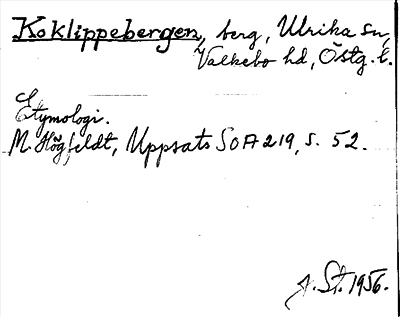 Koklippebergen, berg, Ulrika sn,
Valkebo hd, Östg. l.
Etymologi.
M. Högfeldt, Uppsats SOA 219, s. 52.
St. 1956.